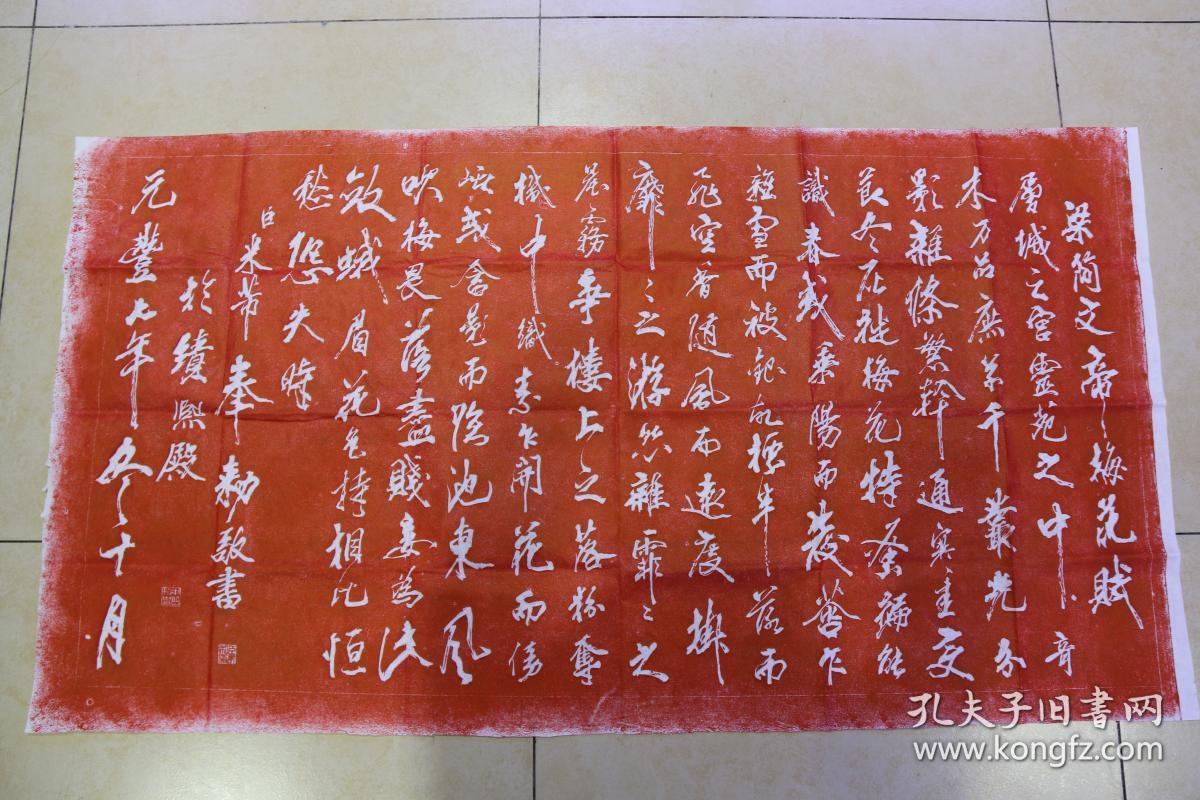 梁简文帝梅花賦
層城之宮靈苑之中奇
木万品庶草千叢光分
影雜條繁幹通寒圭变
節冬灰徙梅花特蚤編能
識春或乗陽而發蕚乍
雜雪而被銀標半落而
飛空香随風而遠度掛
靡靡之游絲雜霏霏之
晨霧争樓上之落粉奪
機中織素乍開花而傍
巘或含影而臨池東風
吹梅畏落盡賤妾為此
斂蛾眉花色持相比恒
愁恐失時
臣米芾奉勅敬書
於績熙殿
元豐七年冬十月
孔夫子旧書网
www.kongfz.com